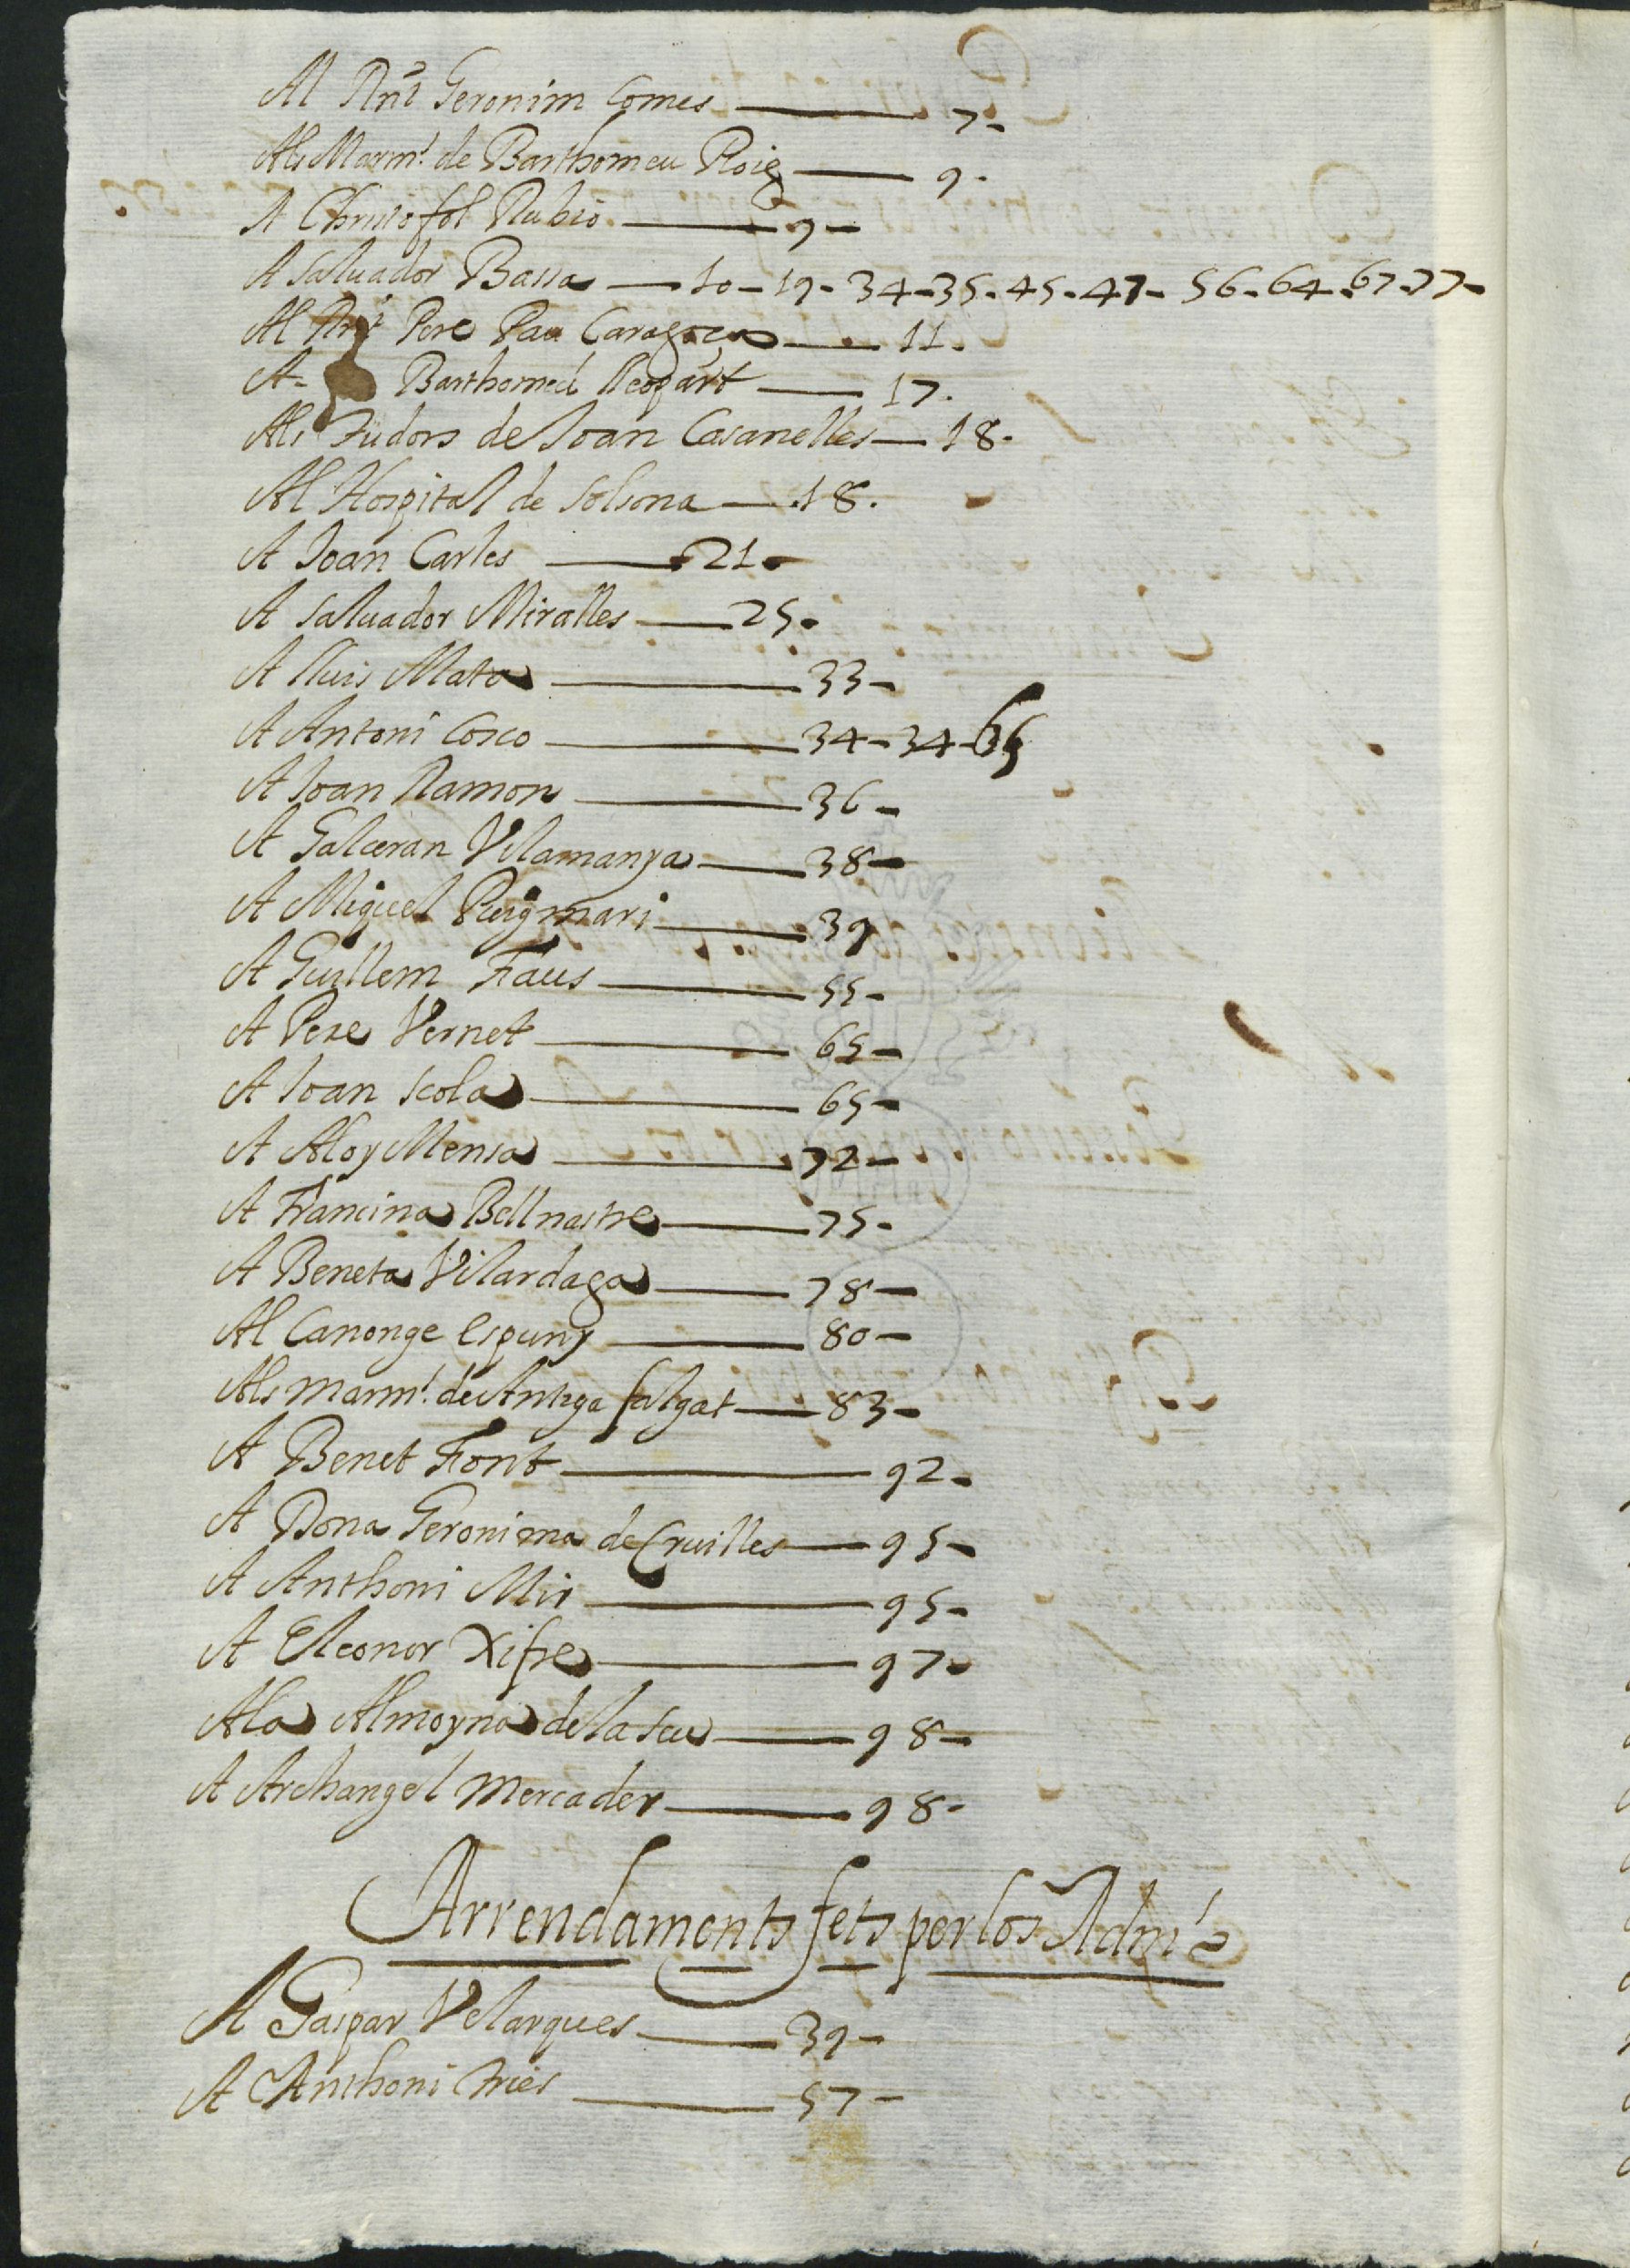 Al Rnt Geronim Comes — 7-
Als Marm.s de Barthomeu Roig — 9.
A Christofol Rubio — 9-
A Saluador Bassa — 10-19-34-35-45-47-56-64-67-77-
Al Rnt Pere Pau Caragoça — 11.
A- Barthomeu lleopart — 17.
Als Tudors de Joan Casanelles — 18-
Al Hospital de Solsona — 18.
A Joan Carles — 21-
A Saluador Miralles — 25.
A lluis Mata — 33-
A Antoni Cosco — 34-34-65
A Joan Ramon — 36-
A Galceran Vilamanya — 38-
A Miquel Puigmari — 39
A Guillem Faus — 55-
A Pere Vernet — 65-
A Joan Scola — 65-
A Aloy Mensa — 72-
A Francina Bellnastre — 75-
A Beneta Vilardaga — 78-
Al Canonge Espuny — 80-
Als marm.s de Antiga salgat — 83-
A Benet Font — 92-
A Dona Geronima de Cruilles — 95-
A Anthoni Mir — 95-
A Eleonor Xifre — 97-
Ala Almoyna de la seu — 98-
A Archangel Mercader — 98-
Arrendaments fets per los Adm.s
A Gaspar Velasques — 39-
A Anthoni Tries — 57-